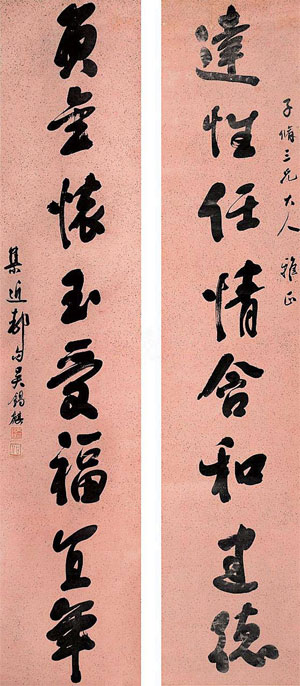 子脩三兄大人 雅正
達性任情含和建德
負金懷玉受福宜年
集 句吳錫麒